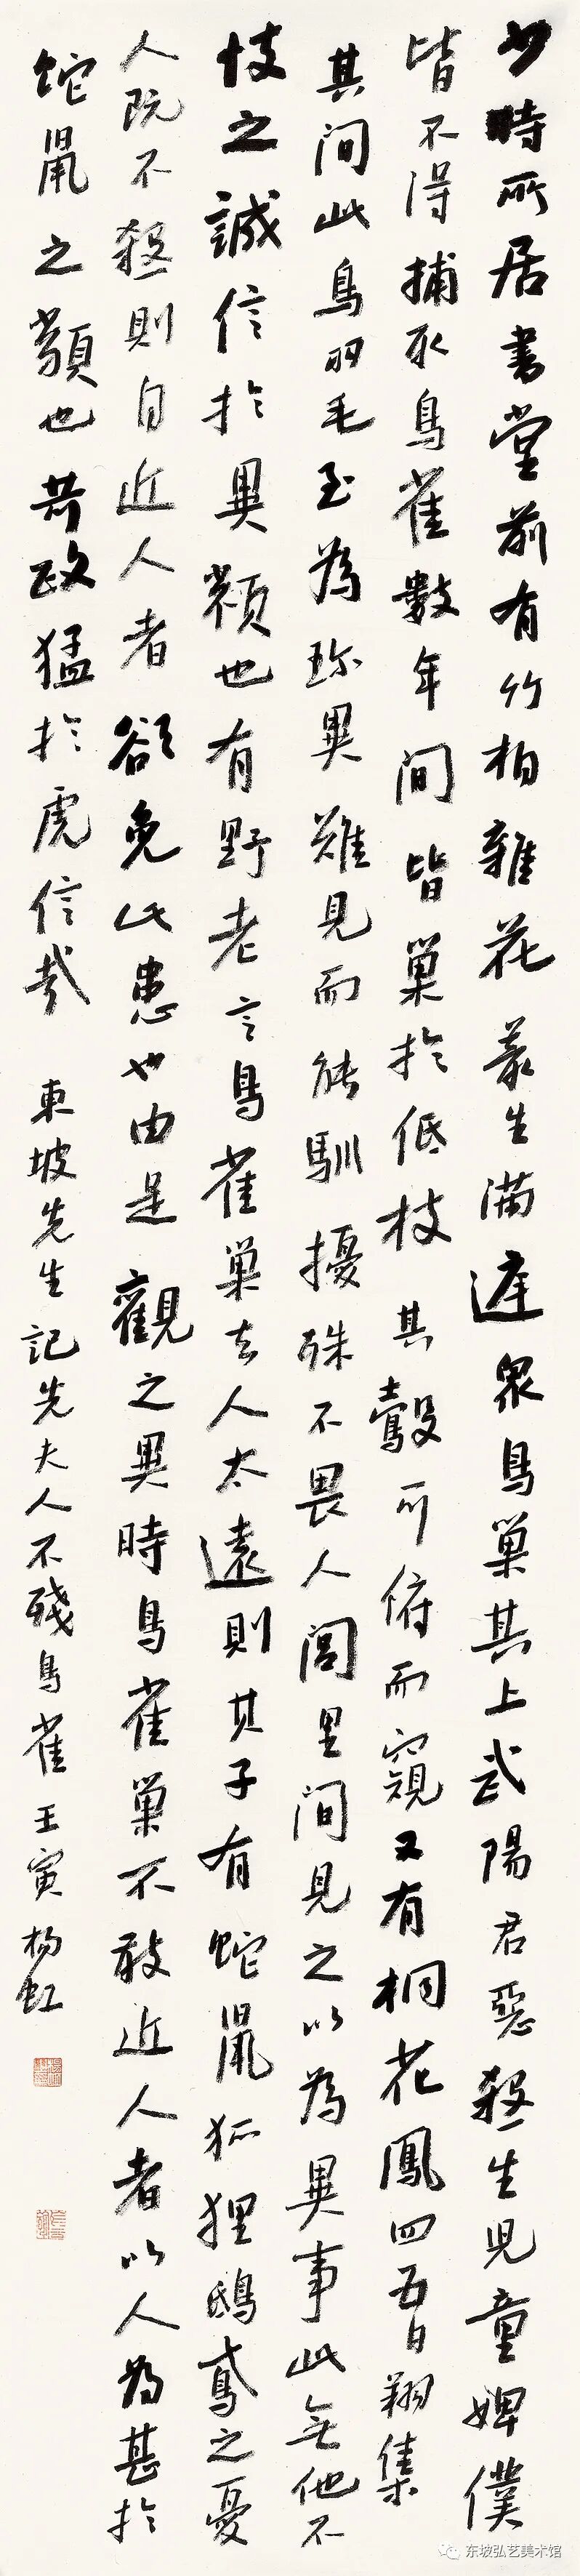 少時所居書堂前有竹柏雜花叢生滿庭衆鳥巢其上武陽君惡殺生兒童婢僕
皆不得捕取鳥雀數年間皆巢於低枝其鷇可俯而窺又有桐花鳳四五日翔集
其間此鳥羽毛至為珍異難見而能馴擾殊不畏人閭里間見之以為異事此無他不
忮之誠信於異類也有野老言鳥雀巢去人太遠則其子有蛇鼠狐狸鴟鳶之憂
人既不殺則自近人者欲免此患也由是觀之異時鳥雀巢不敢近人者以人為甚於
蛇鼠之類也苛政猛於虎信哉
東坡先生記先夫人不殘鳥雀 王寅 楊虹
东坡弘艺美术馆